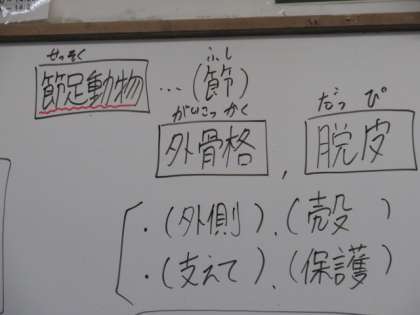 せっそく ふし
節足動物 …(節)
がいこっかく だっぴ
外骨格 , 脱皮
・(外側)、(殻)
・(支えて)、(保護)